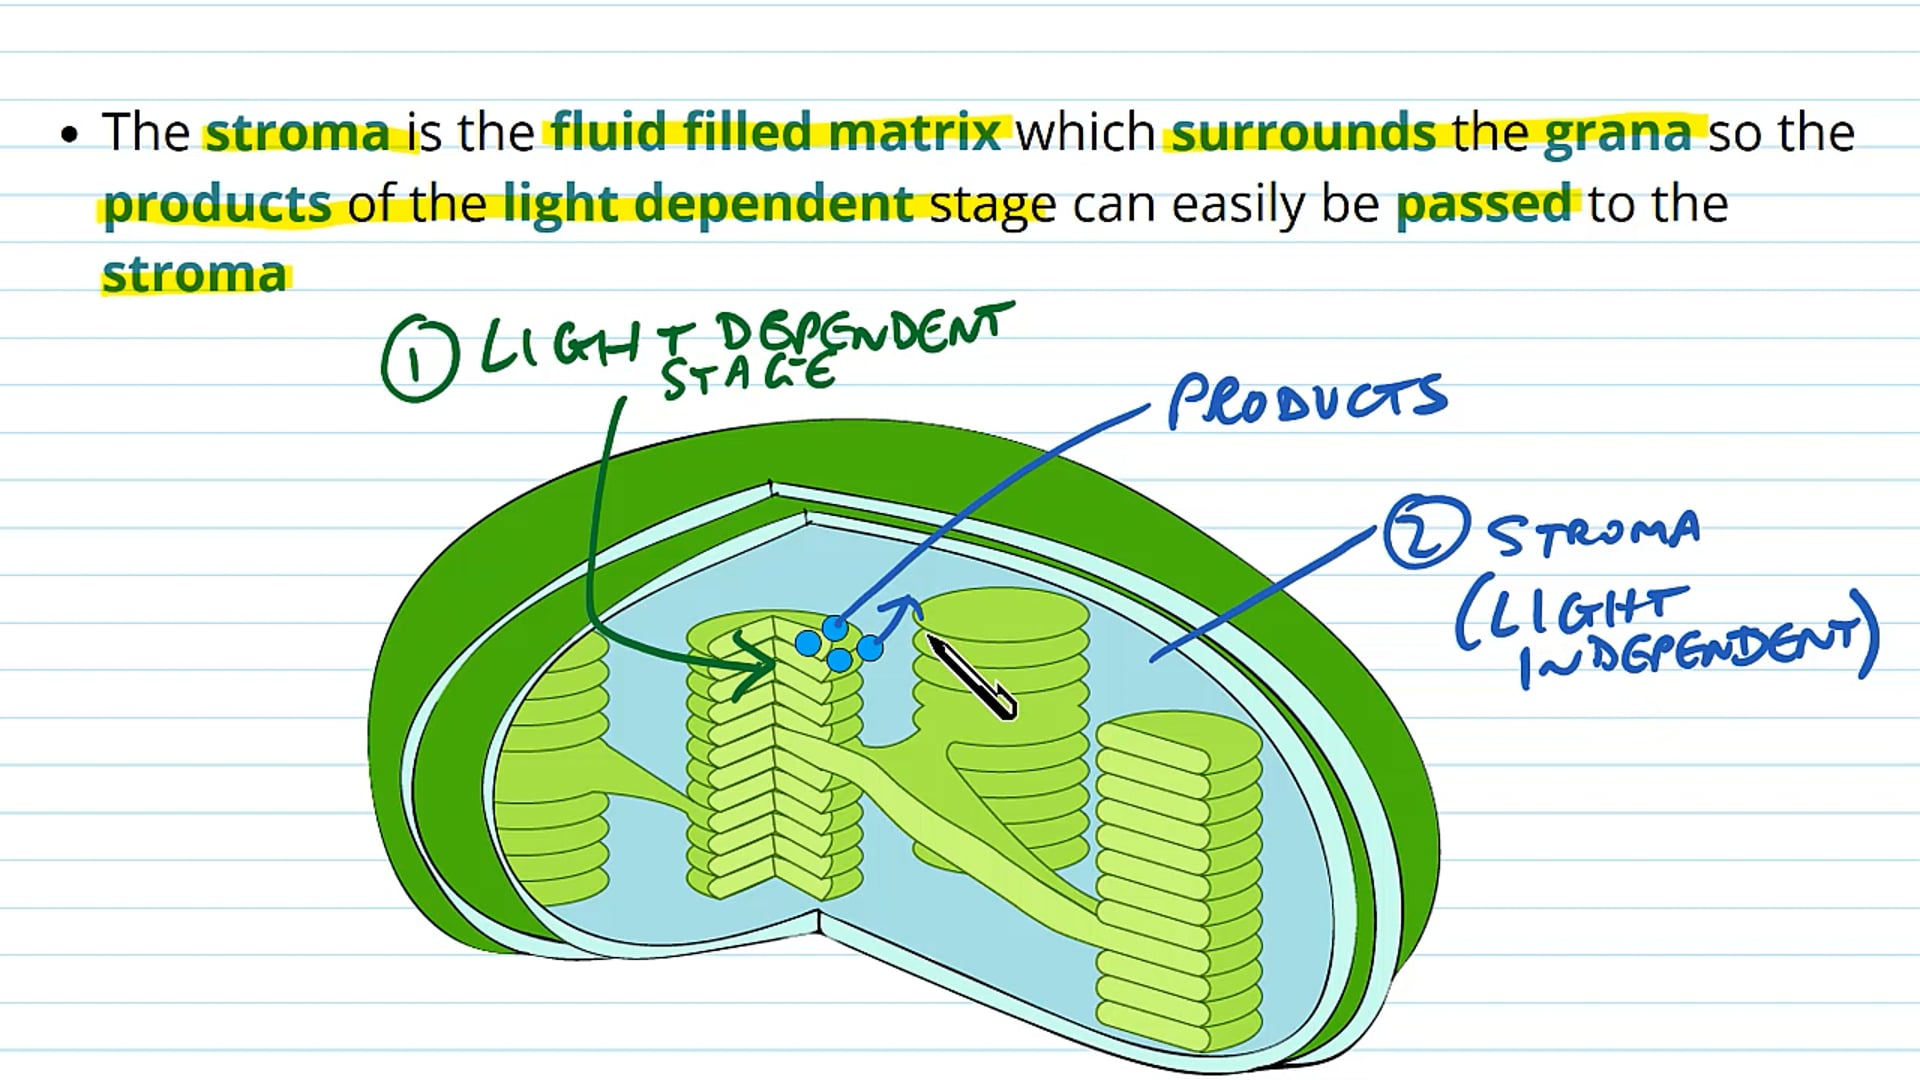 • The stroma is the fluid filled matrix which surrounds the grana so the
products of the light dependent stage can easily be passed to the
stroma
1 LIGHT DEPENDENT
STAGE
PRODUCTS
2 STROMA
(LIGHT
INDEPENDENT)